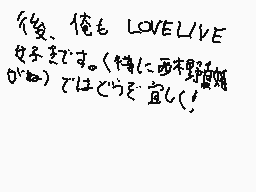 後、俺も LOVELIVE
好きです。(特に西木野真姫
がね)ではどうぞ宜しく!